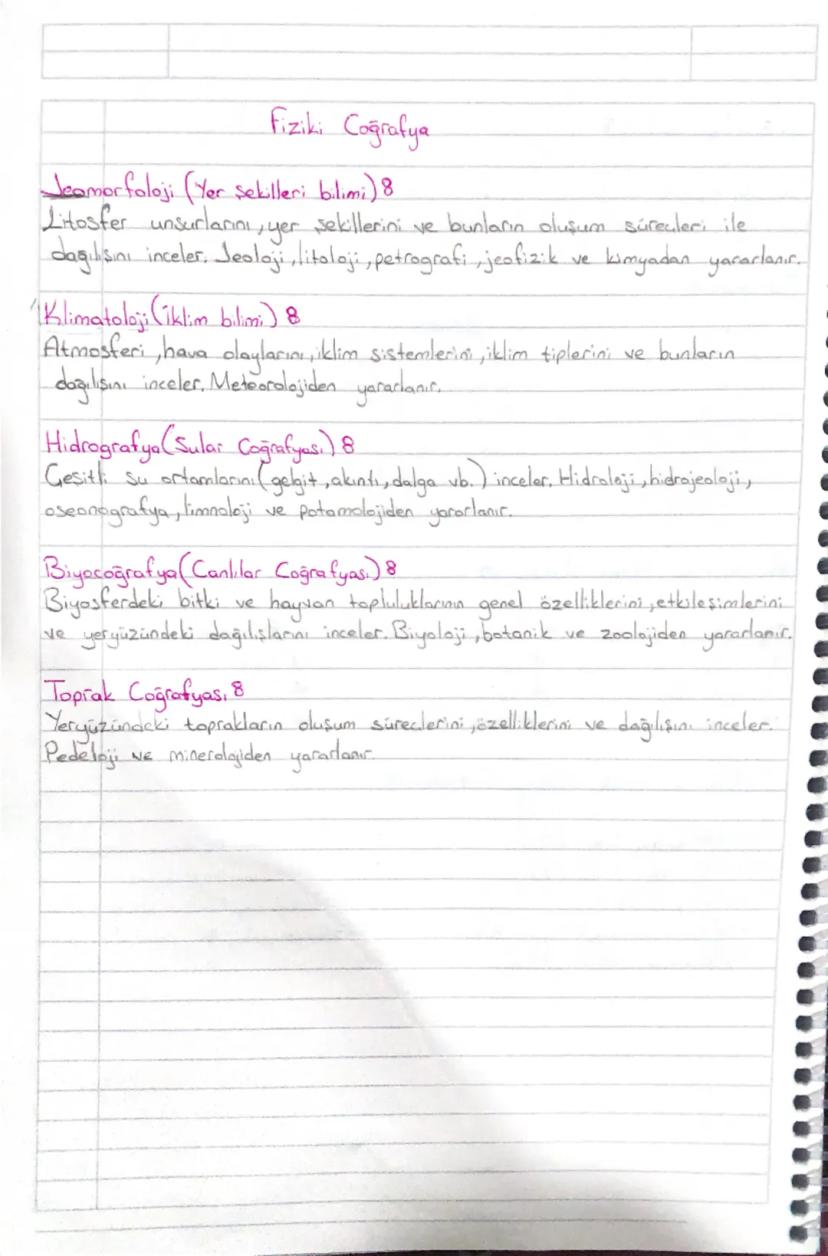 Fiziki Coğrafya
Jeomorfoloji (Yer şekilleri bilimi) 8
Litosfer unsurlarını, yer şekillerini ve bunların oluşum süreçleri ile
dağılışını inceler. Jeoloji, litoloji, petrografi, jeofizik ve kimyadan yararlanır.
Klimatoloji (İklim bilimi) 8
Atmosferi, hava olaylarını, iklim sistemlerini, iklim tiplerini ve bunların
dağılışını inceler. Meteorolojiden yararlanır.
Hidrografya (Sular Coğrafyası) 8
Çeşitli su ortamlarını (gelgit, akıntı, dalga vb.) inceler. Hidroloji, hidrojeoloji,
oseonografya, limnoloji ve potamolojiden yararlanır.
Biyocoğrafya (Canlılar Coğrafyası) 8
Biyosferdeki bitki ve hayvan topluluklarının genel özelliklerini, etkileşimlerini
ve yeryüzündeki dağılışlarını inceler. Biyoloji, botanik ve zoolojiden yararlanır.
Toprak Coğrafyası 8
Yeryüzündeki toprakların oluşum süreçlerini, özelliklerini ve dağılışını inceler.
Pedeloji ve minerolojiden yararlanır.